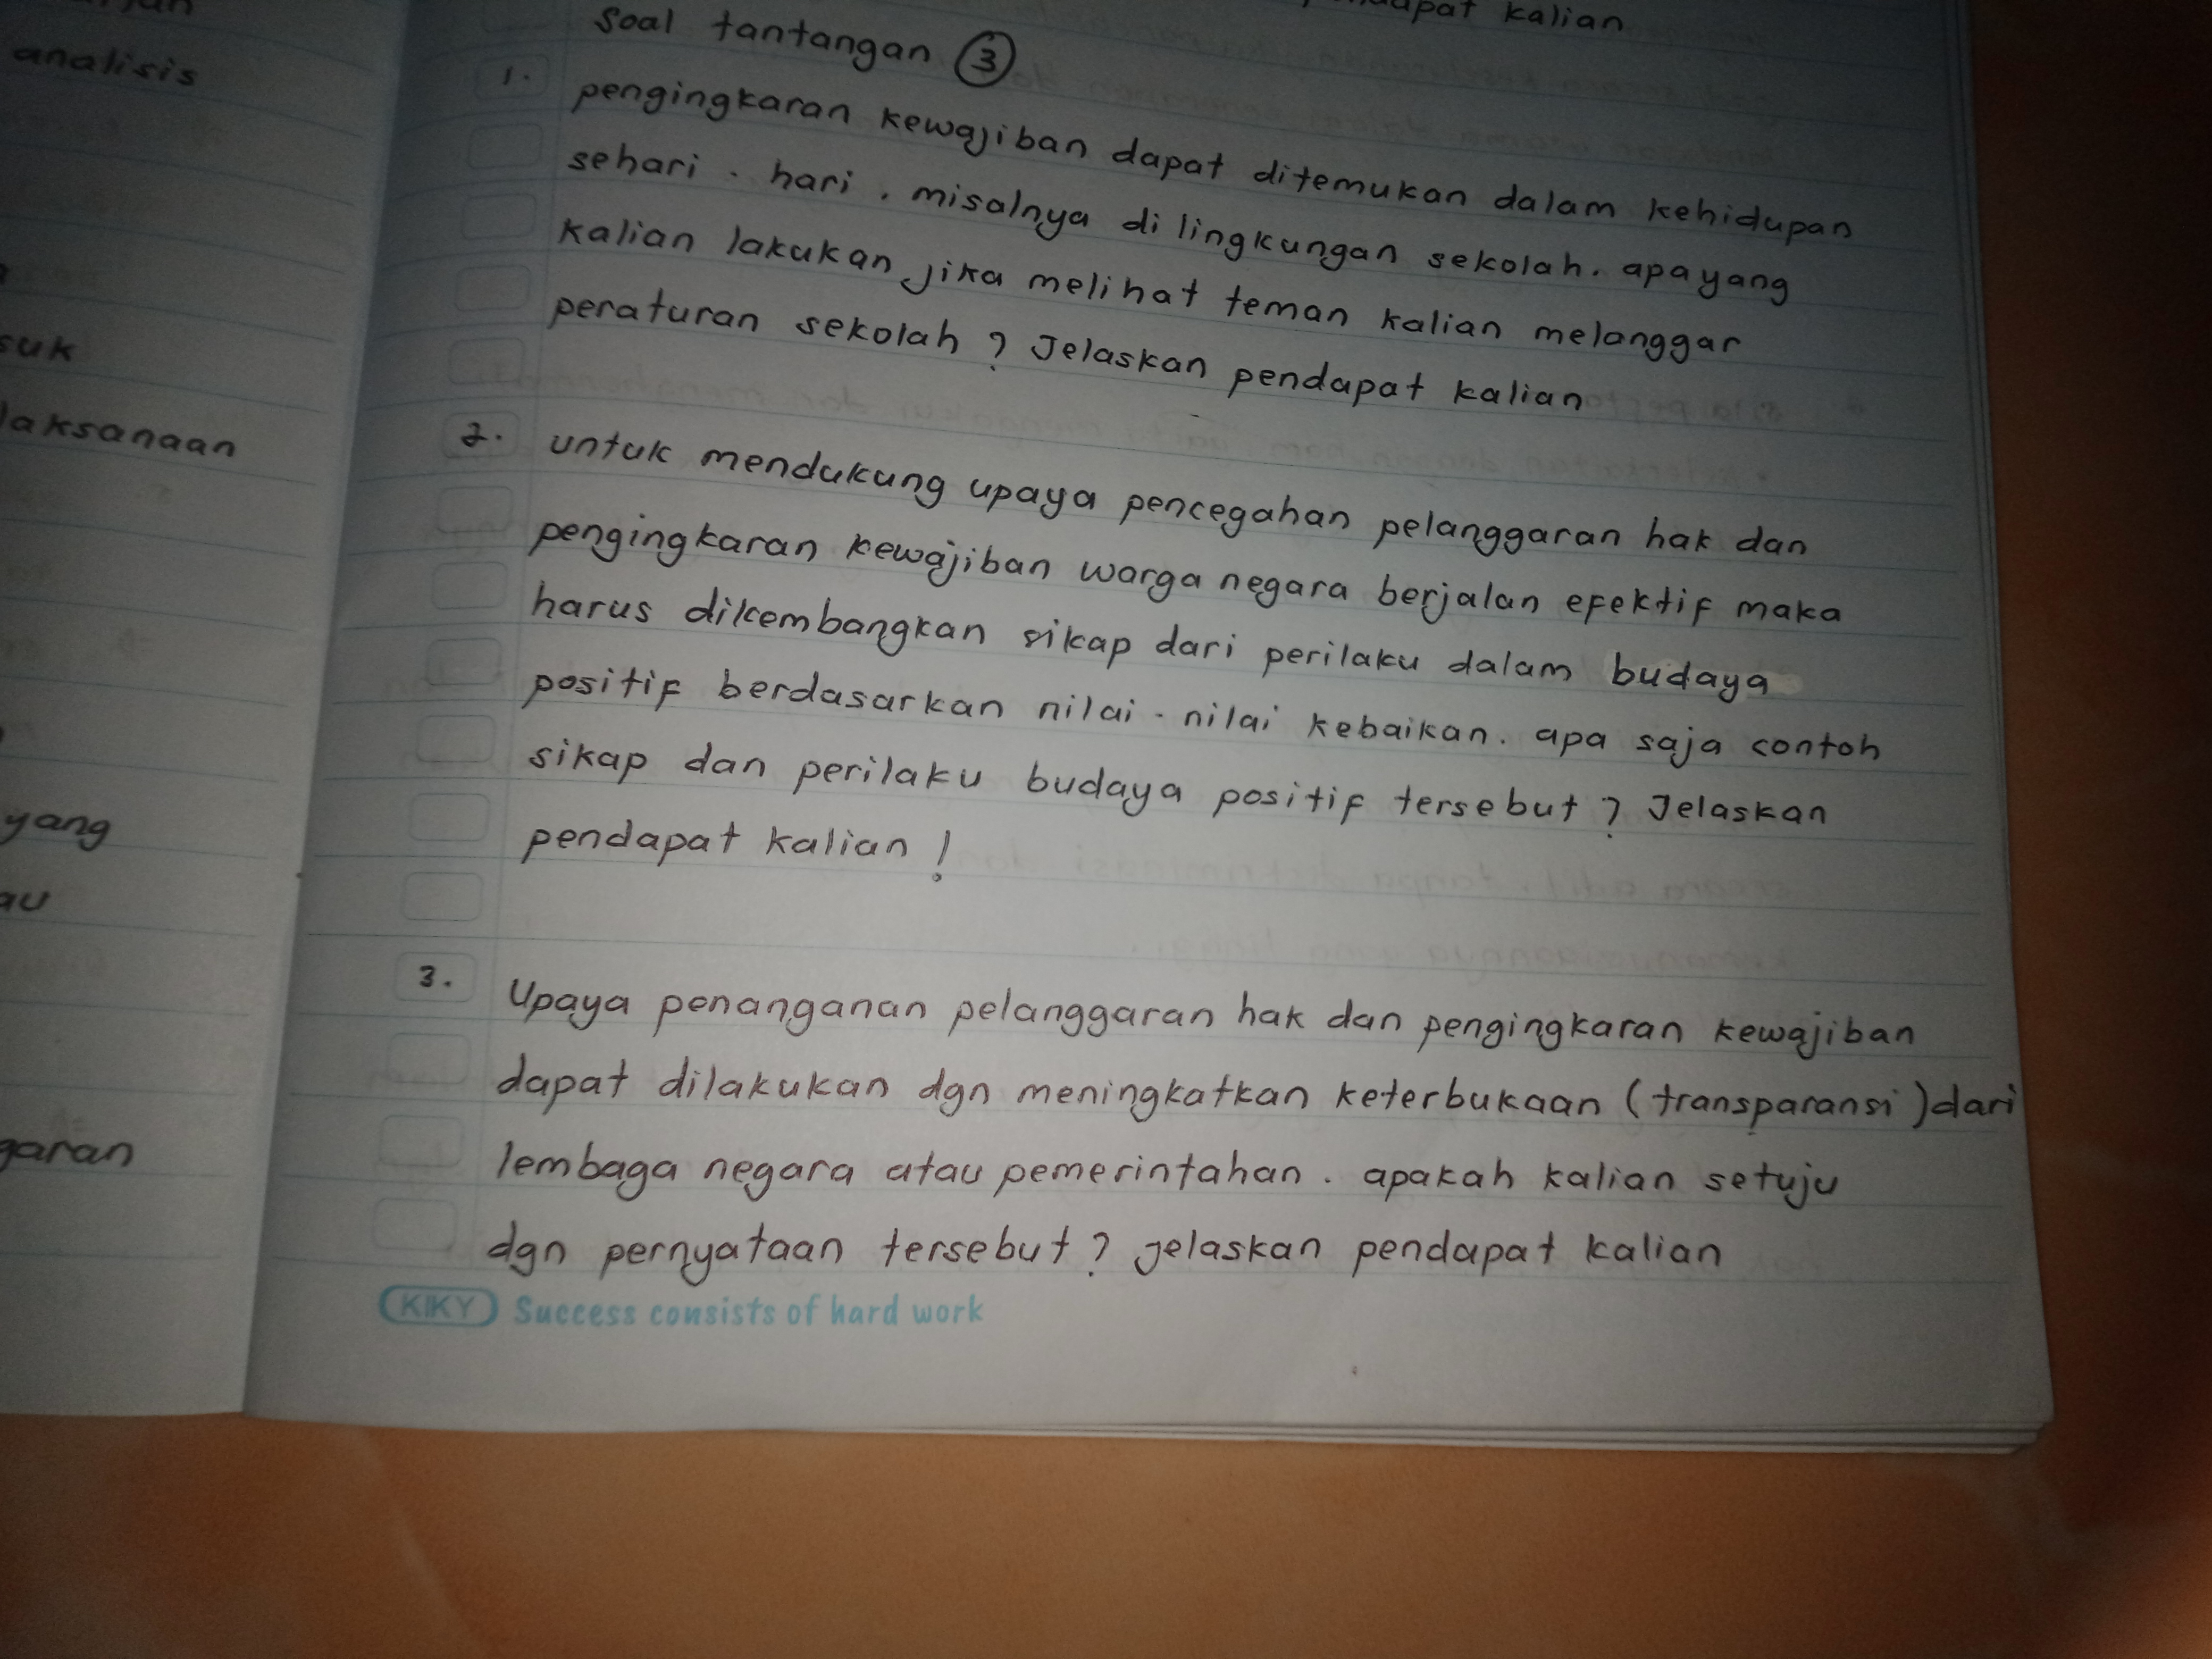 analisis
suk
laksanaan
yang
au
garan
kalian
soal tantangan 3
1. pengingkaran kewajiban dapat ditemukan dalam kehidupan
sehari - hari. misalnya di lingkungan sekolah. apa yang
kalian lakukan jika melihat teman kalian melanggar
peraturan sekolah ? Jelaskan pendapat kalian
2. untuk mendukung upaya pencegahan pelanggaran hak dan
pengingkaran kewajiban warga negara berjalan efektif maka
harus dikembangkan sikap dari perilaku dalam budaya
positif berdasarkan nilai - nilai kebaikan. apa saja contoh
sikap dan perilaku budaya positif tersebut ? Jelaskan
pendapat kalian !
3. Upaya penanganan pelanggaran hak dan pengingkaran kewajiban
dapat dilakukan dgn meningkatkan keterbukaan (transparansi) dari
lembaga negara atau pemerintahan. apakah kalian setuju
dgn pernyataan tersebut ? jelaskan pendapat kalian
KIKY Success consists of hard work